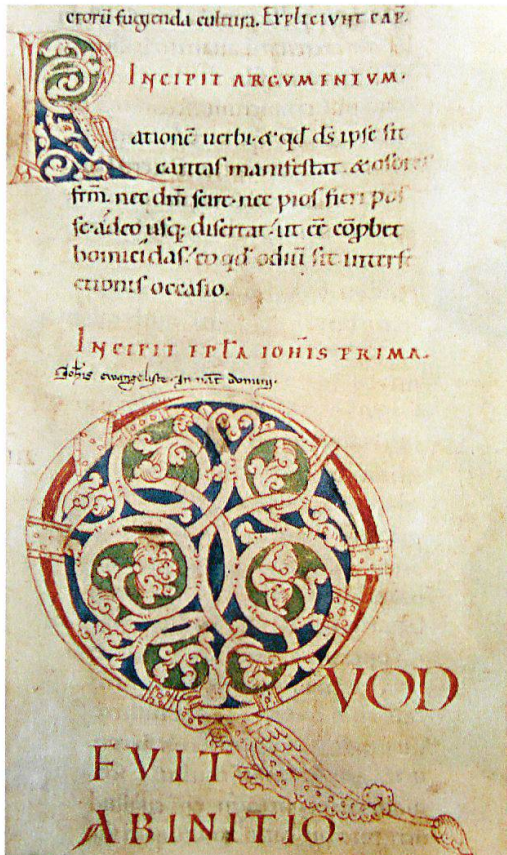 erorū fugienda cultura. EXPLICIVNT CAP̄.
INCIPIT ARGVMENTVM.
Rationē uerbi. & qđ dš ipse sit
caritas manifestat. & osores
frm̄. nec dm̄ scire. nec pios fieri pos
se. adeo usq; disertat. ut eē cōpbet
homicidas. eo qđ odiū sit interfe
ctionis occasio.
INCIPIT EPLA IOHIS PRIMA.
Johis ewangeliste. In nat̄ domini.
QVOD
FVIT
AB INITIO.